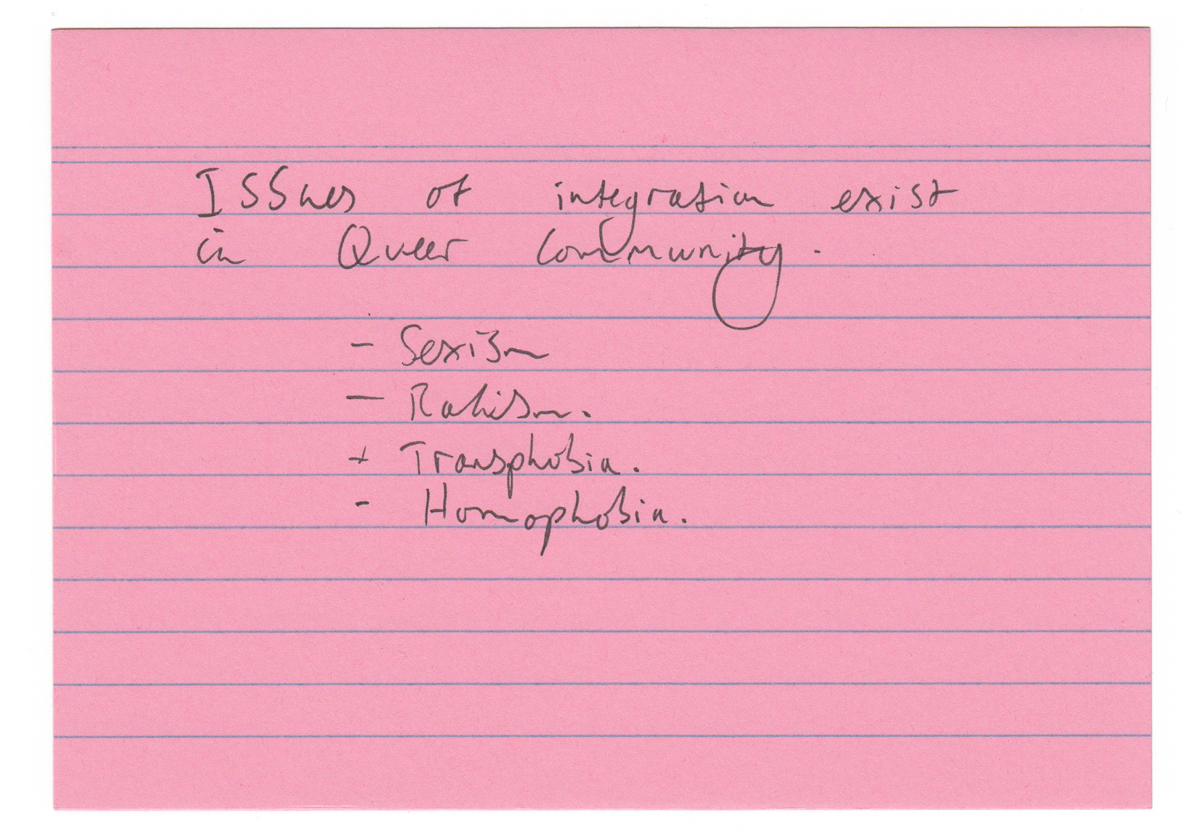 Issues of integration exist
in Queer Community.
- Sexism
- Rahism.
+ Transphobia.
- Homophobia.